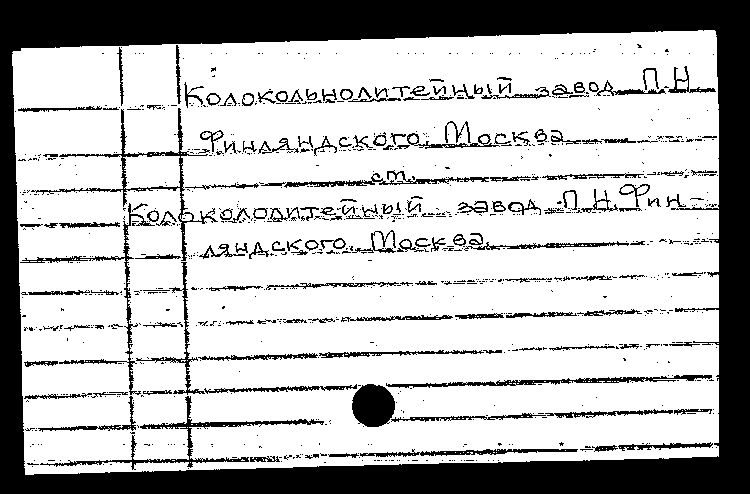 Колокольнолитейный завод П.Н.
Финляндского. Москва
см.
Колоколодитейный завод П.Н.Фин-
ляндского. Москва.